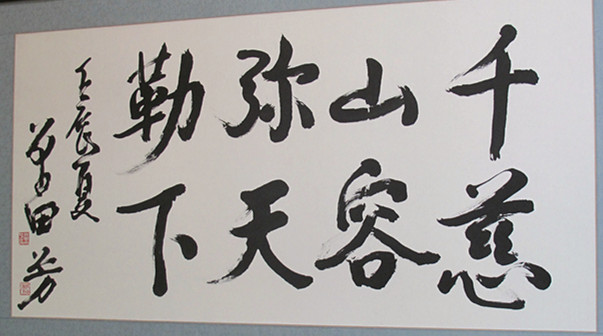 千山弥勒
慈容天下
壬辰夏
单田芳